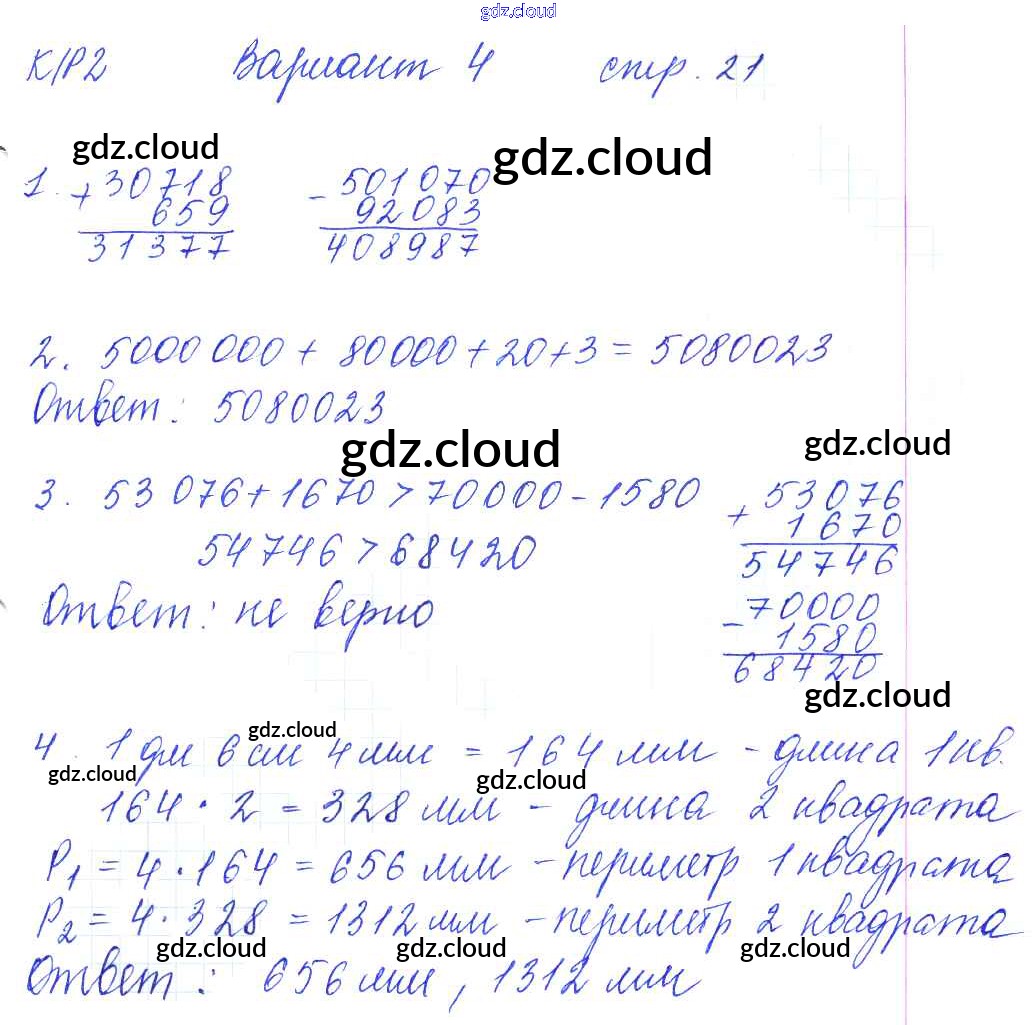 gdz.cloud
К/Р2 Вариант 4 стр. 21
gdz.cloud gdz.cloud
1. + 30718 - 501070
659 92083
31377 408987
2. 5000 000 + 80000 + 20 + 3 = 5080023
Ответ: 5080023
gdz.cloud gdz.cloud
3. 53 076 + 1670 > 70000 - 1580
54746 > 68420
Ответ: не верно
+ 53076
1670
54746
- 70000
1580
68420
gdz.cloud
gdz.cloud
4. 1 дм 6 см 4 мм = 164 мм - длина 1 кв.
gdz.cloud gdz.cloud
164 · 2 = 328 мм - длина 2 квадрата
P1 = 4 · 164 = 656 мм - периметр 1 квадрата
P2 = 4 · 328 = 1312 мм - периметр 2 квадрата
gdz.cloud gdz.cloud gdz.cloud
Ответ: 656 мм, 1312 мм